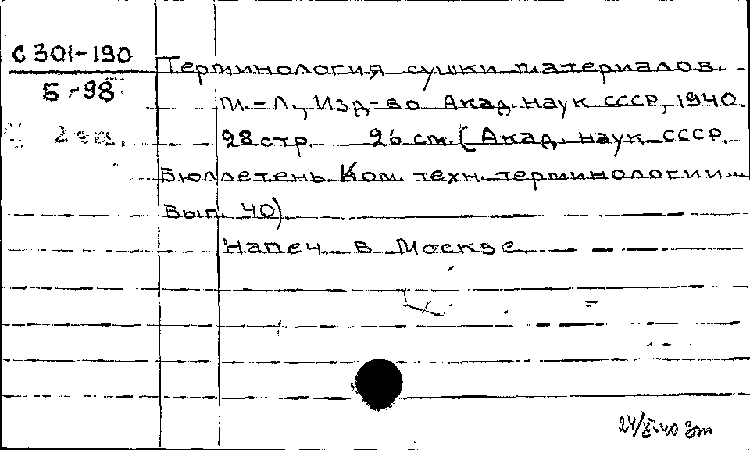 С 301-190
Б-98
2 экз.
Терминология сушки материалов.
М.-Л., Изд-во Акад. наук СССР, 1940.
28 стр. 26 см. (Акад. наук СССР.
Бюллетень Ком. техн. терминологии.
Вып. 40)
Напеч. в Москве